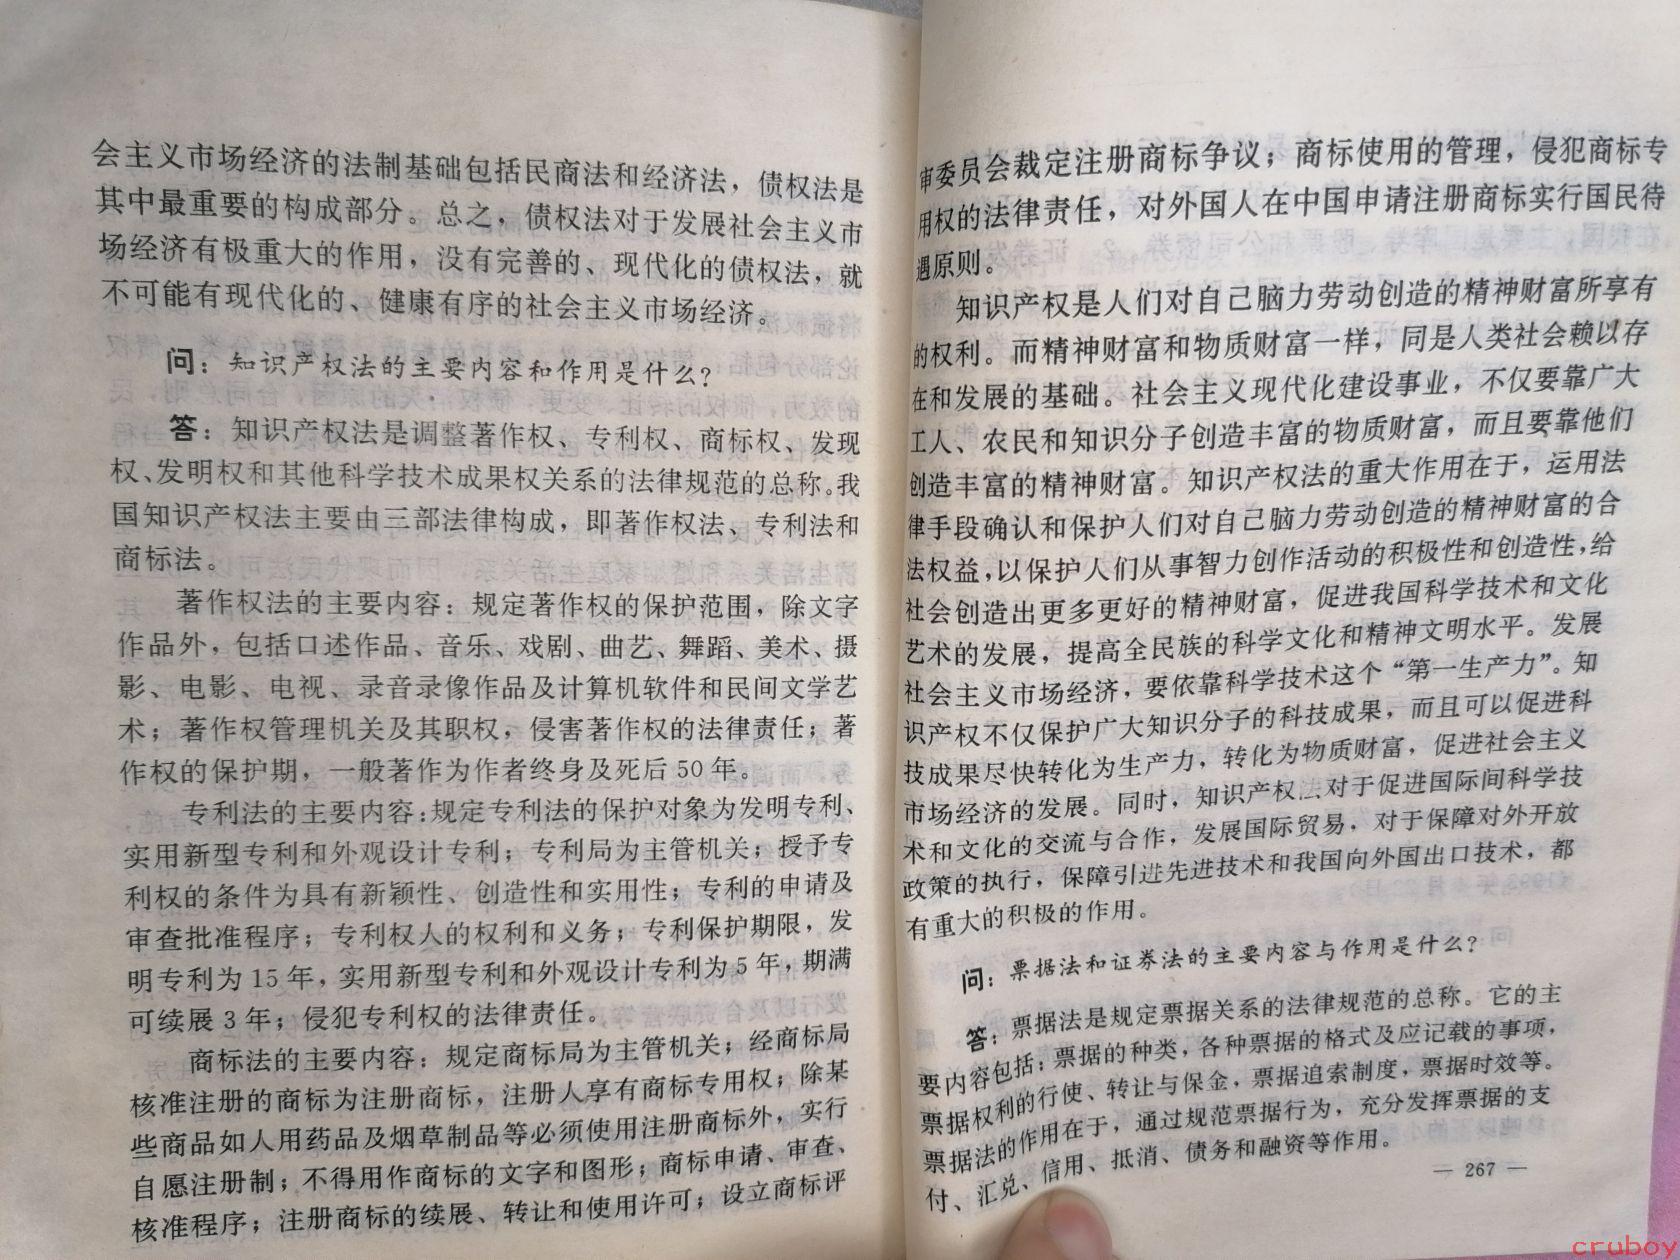 会主义市场经济的法制基础包括民商法和经济法，债权法是
其中最重要的构成部分。总之，债权法对于发展社会主义市
场经济有极重大的作用，没有完善的、现代化的债权法，就
不可能有现代化的、健康有序的社会主义市场经济。
问：知识产权法的主要内容和作用是什么？
答：知识产权法是调整著作权、专利权、商标权、发现
权、发明权和其他科学技术成果权关系的法律规范的总称。我
国知识产权法主要由三部法律构成，即著作权法、专利法和
商标法。
著作权法的主要内容：规定著作权的保护范围，除文字
作品外，包括口述作品、音乐、戏剧、曲艺、舞蹈、美术、摄
影、电影、电视、录音录像作品及计算机软件和民间文学艺
术；著作权管理机关及其职权，侵害著作权的法律责任；著
作权的保护期，一般著作为作者终身及死后50年。
专利法的主要内容：规定专利法的保护对象为发明专利、
实用新型专利和外观设计专利；专利局为主管机关；授予专
利权的条件为具有新颖性、创造性和实用性；专利的申请及
审查批准程序；专利权人的权利和义务；专利保护期限，发
明专利为15年，实用新型专利和外观设计专利为5年，期满
可续展3年；侵犯专利权的法律责任。
商标法的主要内容：规定商标局为主管机关；经商标局
核准注册的商标为注册商标，注册人享有商标专用权；除某
些商品如人用药品及烟草制品等必须使用注册商标外，实行
自愿注册制；不得用作商标的文字和图形；商标申请、审查、
核准程序；注册商标的续展、转让和使用许可；设立商标评
审委员会裁定注册商标争议；商标使用的管理，侵犯商标专
用权的法律责任，对外国人在中国申请注册商标实行国民待
遇原则。
知识产权是人们对自己脑力劳动创造的精神财富所享有
的权利。而精神财富和物质财富一样，同是人类社会赖以存
在和发展的基础。社会主义现代化建设事业，不仅要靠广大
工人、农民和知识分子创造丰富的物质财富，而且要靠他们
创造丰富的精神财富。知识产权法的重大作用在于，运用法
律手段确认和保护人们对自己脑力劳动创造的精神财富的合
法权益，以保护人们从事智力创作活动的积极性和创造性，给
社会创造出更多更好的精神财富，促进我国科学技术和文化
艺术的发展，提高全民族的科学文化和精神文明水平。发展
社会主义市场经济，要依靠科学技术这个“第一生产力”。知
识产权不仅保护广大知识分子的科技成果，而且可以促进科
技成果尽快转化为生产力，转化为物质财富，促进社会主义
市场经济的发展。同时，知识产权法对于促进国际间科学技
术和文化的交流与合作，发展国际贸易，对于保障对外开放
政策的执行，保障引进先进技术和我国向外国出口技术，都
有重大的积极的作用。
问：票据法和证券法的主要内容与作用是什么？
答：票据法是规定票据关系的法律规范的总称。它的主
要内容包括：票据的种类，各种票据的格式及应记载的事项，
票据权利的行使、转让与保金，票据追索制度，票据时效等。
票据法的作用在于，通过规范票据行为，充分发挥票据的支
付、汇兑、信用、抵消、债务和融资等作用。
— 267 —
cruboy